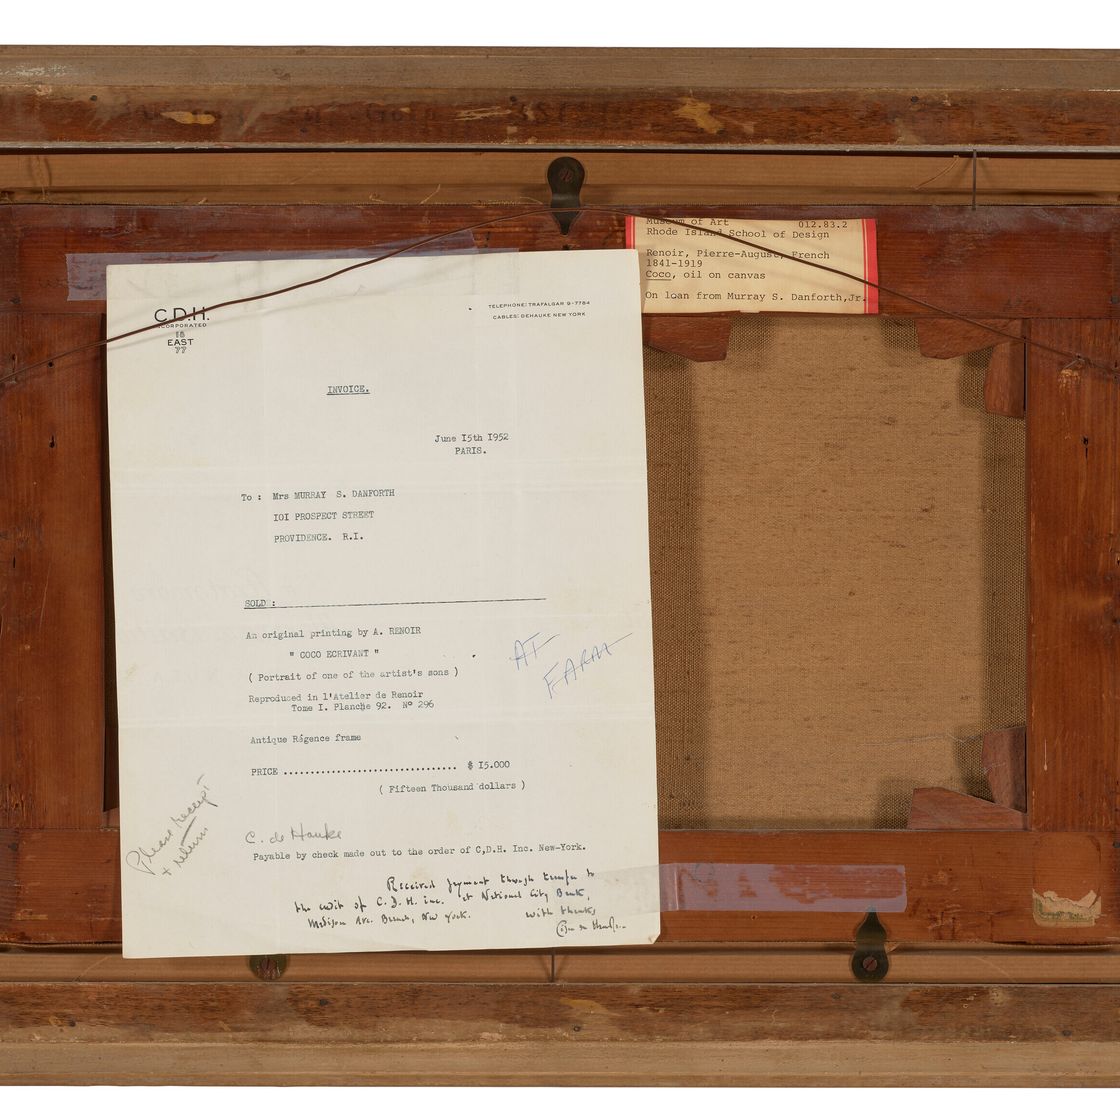 Museum of Art 012.83.2
Rhode Island School of Design
Renoir, Pierre-August, French
1841-1919
Coco, oil on canvas
On loan from Murray S. Danforth,Jr.
C.D.H.
INCORPORATED
18
EAST
77
TELEPHONE: TRAFALGAR 9-7784
CABLES: DEHAUKE NEW YORK
INVOICE.
June I5th I952
PARIS.
To : Mrs MURRAY S. DANFORTH
IOI PROSPECT STREET
PROVIDENCE. R.I.
SOLD :
An original printing by A. RENOIR
" COCO ECRIVANT "
( Portrait of one of the artist's sons )
Reproduced in l'Atelier de Renoir
Tome I. Planche 92. Nº 296
AT
FARM
Antique Régence frame
PRICE ................................ $ I5.000
( Fifteen Thousand dollars )
Please receipt
+ return
C. de Hauke
Payable by check made out to the order of C,D.H. Inc. New-York.
Received payment through transfer to
the credit of C.D.H. inc. at National City Bank,
Madison Ave. Branch, New York. with thanks,